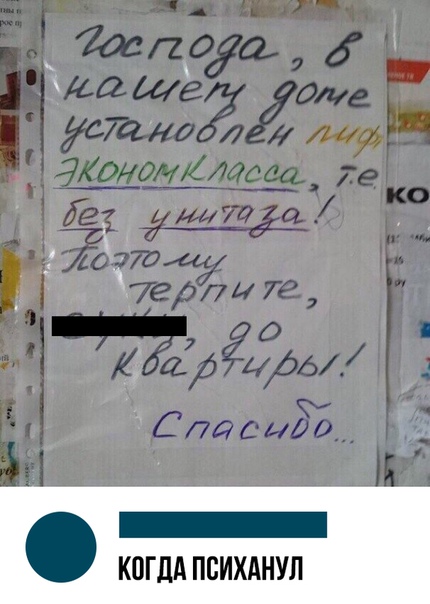 Господа, в
нашем доме
установлен лифт
экономкласса, т.е.
без унитаза!
Поэтому
терпите,
до
квартиры!
Спасибо...
КО
КОГДА ПСИХАНУЛ